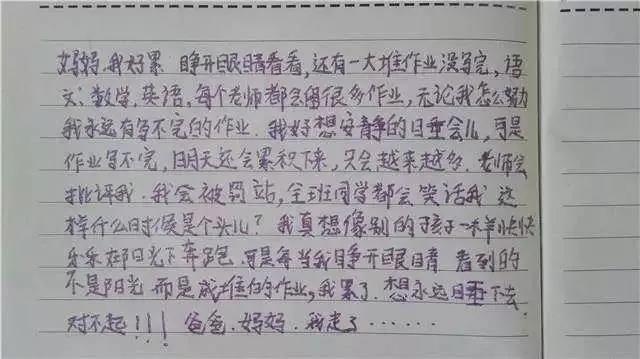 妈妈,我好累 睁开眼睛看看,还有一大堆作业没写完,语
文、数学,英语,每个老师都会留很多作业,无论我怎么努力
我永远有写不完的作业.我好想安静的睡会儿,可是
作业写不完,明天还会累积下来,只会越来越多.老师会
批评我.我会被罚站,全班同学都会笑话我 这
样什么时候是个头儿?我真想像别的孩子一样快快
乐乐在阳光下奔跑 可是每当我睁开眼睛 看到的
不是阳光 而是成堆的作业,我累了.想永远睡下去.
对不起!!!爸爸.妈妈.我走了......